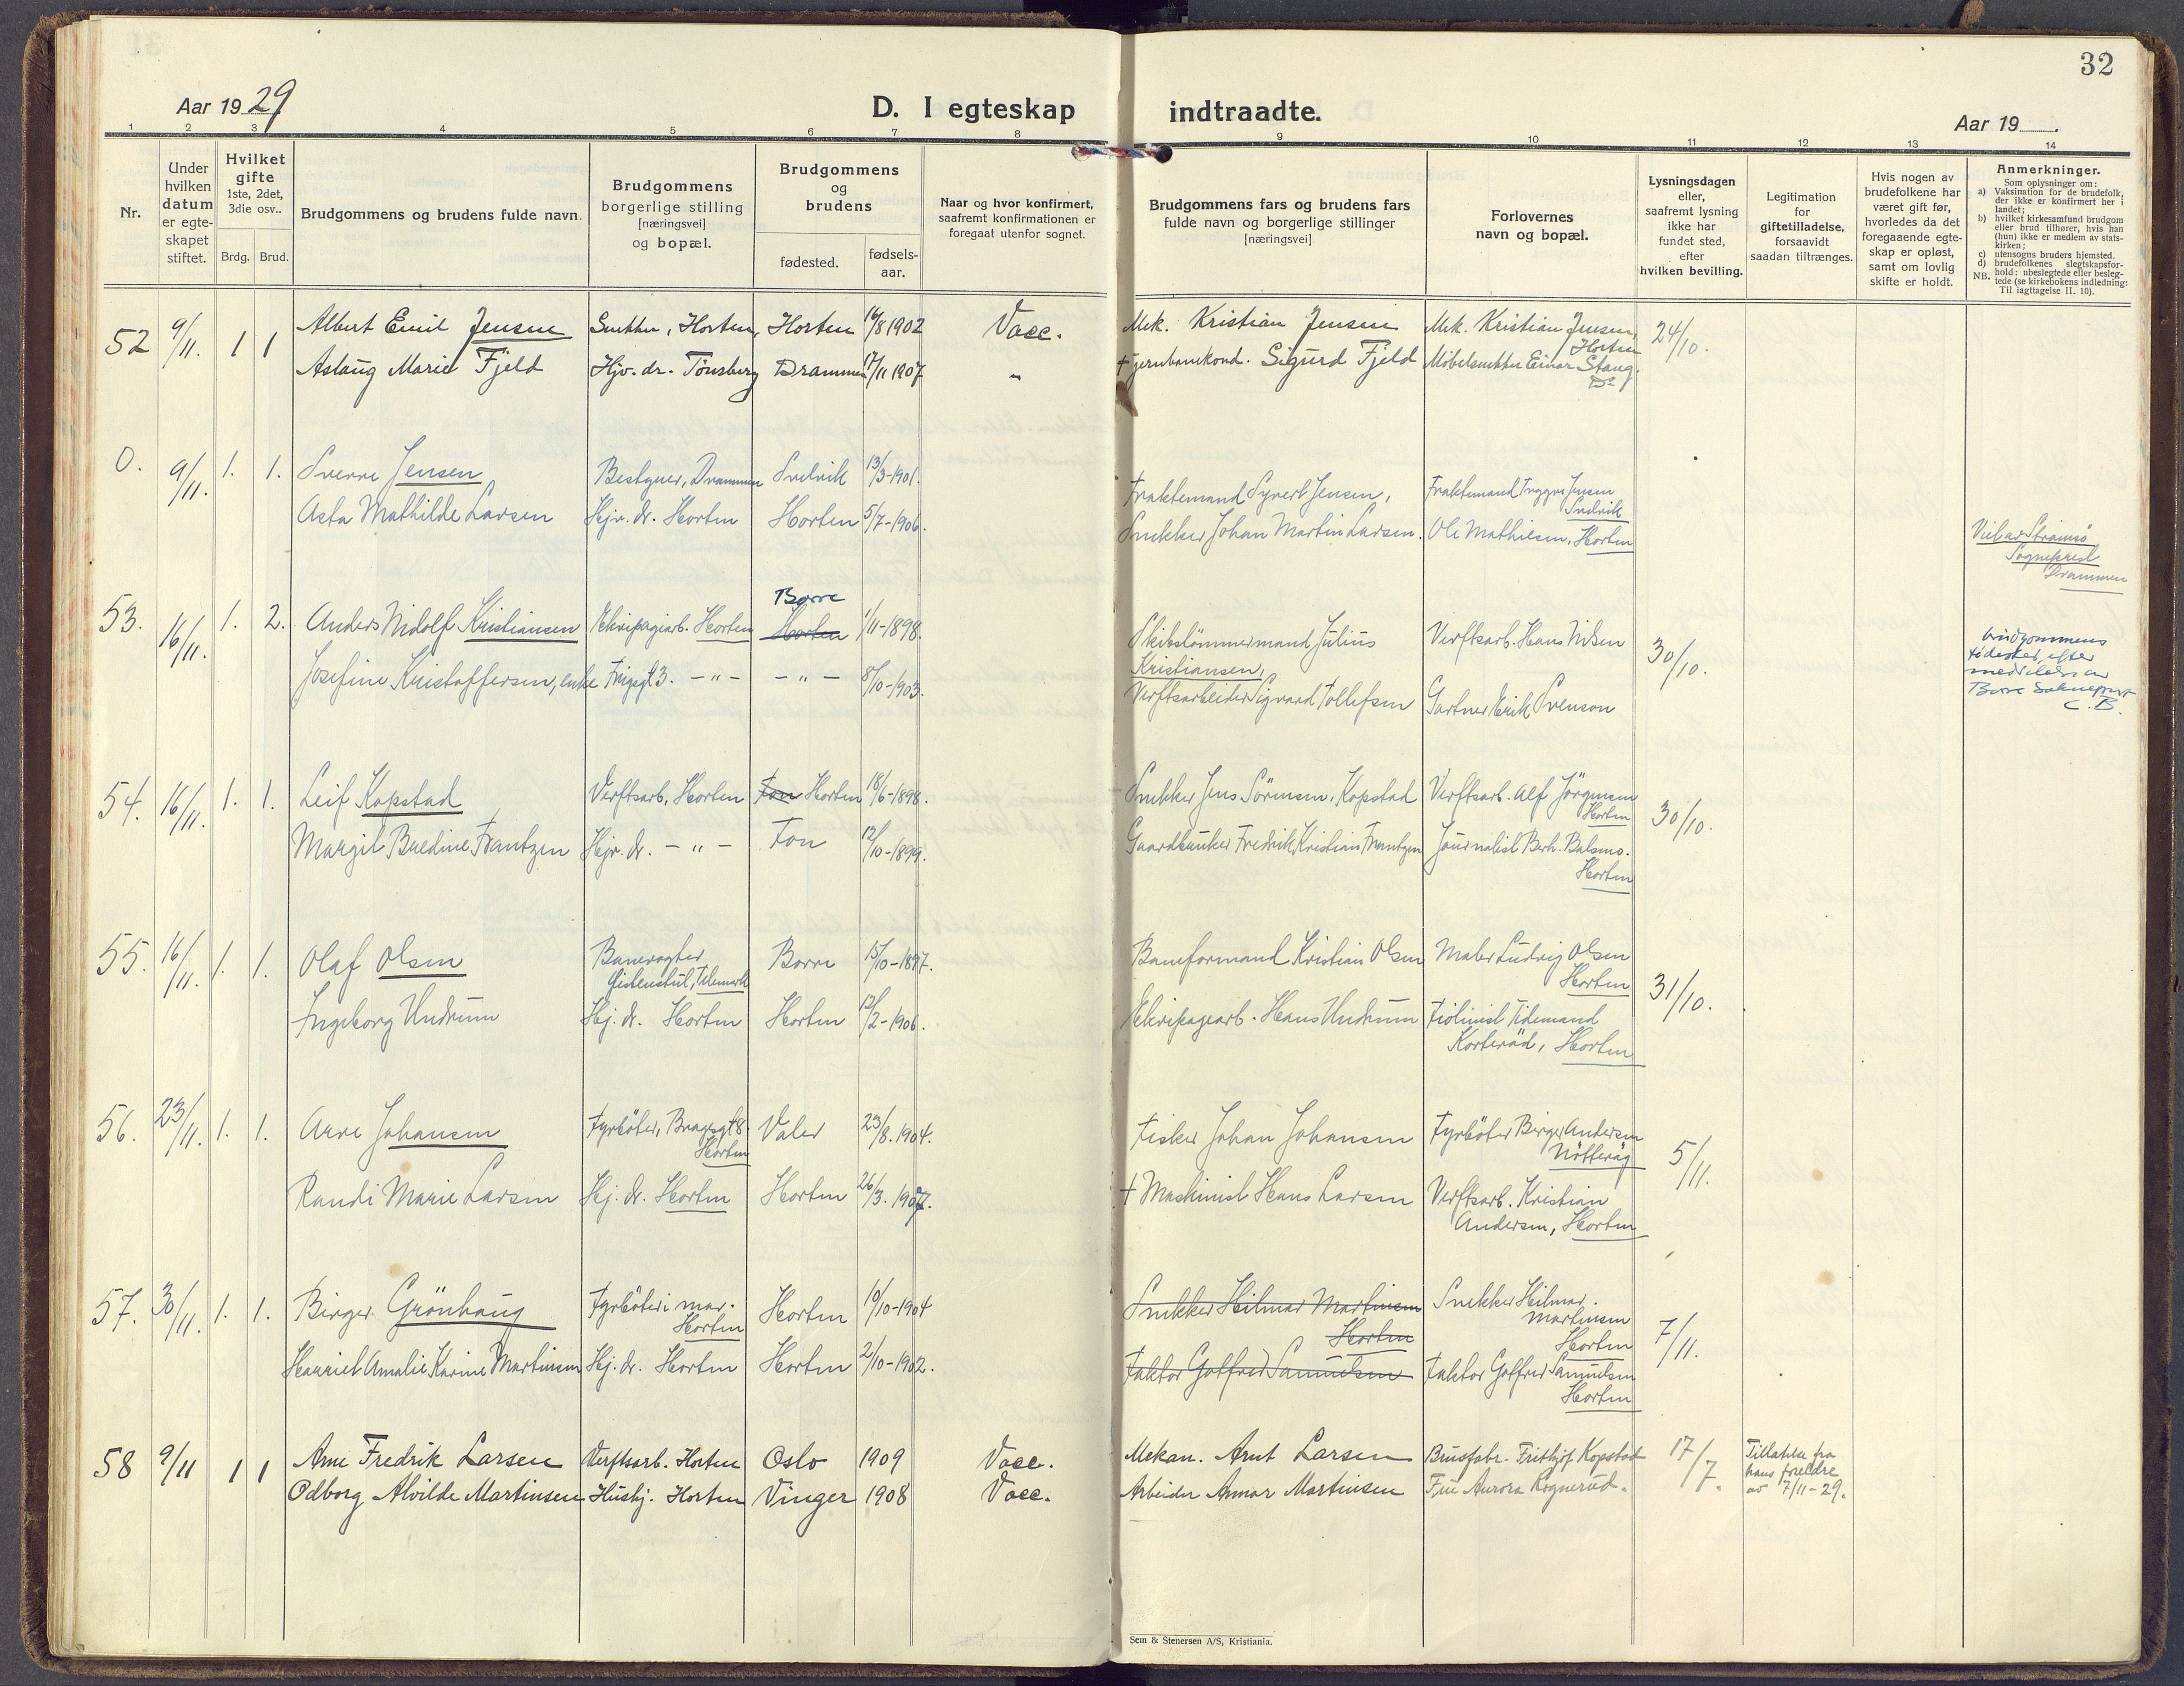 32
Aar 1929.
D. I egteskap indtraadte.
Aar 19___.
1 2 3 4 5 6 7 8 9 10 11 12 13 14
Nr.
Under hvilken datum er egte-skapet stiftet.
Hvilket gifte 1ste, 2det, 3die osv..
Brdg. Brud.
Brudgommens og brudens fulde navn.
Brudgommens borgerlige stilling [næringsvei] og bopæl.
Brudgommens og brudens
fødested.
fødsels-aar.
Naar og hvor konfirmert, saafremt konfirmationen er foregaat utenfor sognet.
Brudgommens fars og brudens fars fulde navn og borgerlige stillinger [næringsvei]
Forlovernes navn og bopæl.
Lysningsdagen eller, saafremt lysning ikke har fundet sted, efter hvilken bevilling.
Legitimation for giftetilladelse, forsaavidt saadan tiltrænges.
Hvis nogen av brudefolkene har været gift før, hvorledes da det foregaaende egte-skap er opløst, samt om lovlig skifte er holdt.
Anmerkninger.
Som oplysninger om:
a) Vaksination for de brudefolk, der ikke er konfirmert her i landet;
b) hvilket kirkesamfund brudgom eller brud tilhører, hvis han (hun) ikke er medlem av stats-kirken;
c) utensogns bruders hjemsted.
d) brudefolkenes slegtskapsfor-hold: ubeslegtede eller besleg-tede (se kirkebokens indledning:
NB. Til iagttagelse II. 10).
52 9/11. 1 1 Albert Emil Jensen Snekker, Horten, Horten 16/8 1902 Vacc. Mek. Kristian Jensen Mek. Kristian Jensen, Horten 24/10.
Aslaug Marie Fjeld Hjv. dr. Tönsberg Drammen 17/11 1907 " † Jernbanekond. Sigurd Fjeld Möbelsnekker Einar Stang. Do
0. 9/11. 1. 1. Sverre Jensen Bestyrer, Drammen Svelvik 13/3-1901. Fraktemand Syvert Jensen, Fraktemand Trygve Jensen Svelvik
Asta Mathilde Larsen Hjv. dr. Horten Horten 5/7-1906. Snekker Johan Martin Larsen. Ole Mathiesen, Horten
Viet av Strömsö Sogneprest Drammen
53. 16/11. 1. 2. Anders Nidolf Kristiansen Ekvipagearb. Horten Borre Horten 1/11-1898. Skibstömmermand Julius Kristiansen, Verftsarb. Hans Nilsen 30/10.
Josefine Kristoffersen, enke Frigsgt 3. - " - - " - 8/10-1903. Verftsarbeider Sigvard Tollefsen Gartner Erik Svenson
brudgommens födested efter meddelelse av Borre Sokneprest C. B.
54. 16/11. 1. 1. Leif Kopstad Verftsarb, Horten Fon Horten 18/6-1898. Snekker Jens Sörensen, Kopstad Verftsarb. Alf Jörgensen Horten 30/10.
Margit Buedine Frantzen Hjv. dr. - " - Fon 12/10-1899. Gaardbruker Fredrik Kristian Frantzen Journalist Berh. Balsmo. Horten
55. 16/11. 1. 1. Olaf Olsen Banevogter Gistenstul, Telemark Borre 15/10-1897. Baneformand Kristian Olsen Maler Ludvig Olsen Horten 31/10.
Ingeborg Undrum Hj. dr. Horten Horten 12/2-1906. Ekvipagearb. Hans Undrum Fiolinist Tidemand Korteröd, Horten
56. 23/11. 1. 1. Arne Johansen Fyrböter, Bragesgt 8 Horten Valer 23/8. 1904. Fisker Johan Johansen Fyrböter Birger Andersen Nötteröy 5/11.
Randi Marie Larsen Hj. dr. Horten Horten 26/3. 1907. † Maskinist Hans Larsen Verftsarb. Kristian Andersen, Horten
57. 30/11. 1. 1. Birger Grönhaug Fyrböter i mar. Horten Horten 10/10-1904 Snekker Hilmar Martinsen Horten Snekker Hilmar Martinsen Horten 7/11.
Harriet Amalie Karine Martinsen Hj. dr. Horten Horten 2/10-1902. Faktor Gotfred Samuelsen Faktor Gotfred Samuelsen Horten
58 9/11 1 1 Arne Fredrik Larsen Verftsarb. Horten Oslo 1909 Vacc. Mekan. Arnt Larsen Brusfabr. Frithjof Kopstad 17/7. Tillatelse fra hans foreldre av 7/11-29.
Odborg Alvilde Martinsen Hushj. Horten Vinger 1908 Vacc. Arbeider Anmar Martinsen Frue Aurora Rognerud.
Sem & Stenersen A/S, Kristiania.